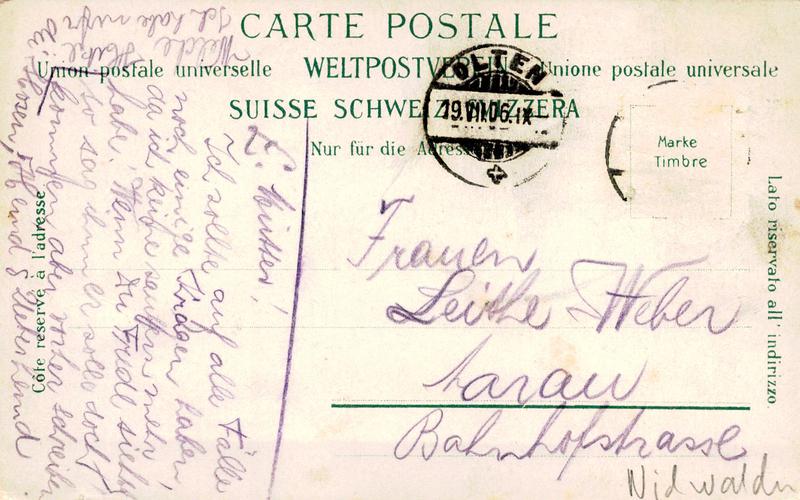 CARTE POSTALE
Union postale universelle WELTPOSTVEREIN Unione postale universale
SUISSE SCHWEIZ SVIZZERA
Nur für die Adresse
OLTEN
19.VII.06.IX
Marke
Timbre
Côté réservé à l'adresse
Lato riservato all' indirizzo.
Frauen
Weber
Aarau
Bahnhofstrasse
Nidwalden
L. Mutter!
Ich sollte auf alle Fälle
noch einige Kragen haben,
da ich keine saubern mehr
habe. Wenn Du Fredi siehst
so sag ihm er solle doch
kommen aber vorher schreiben
Welche
Ich habe nur